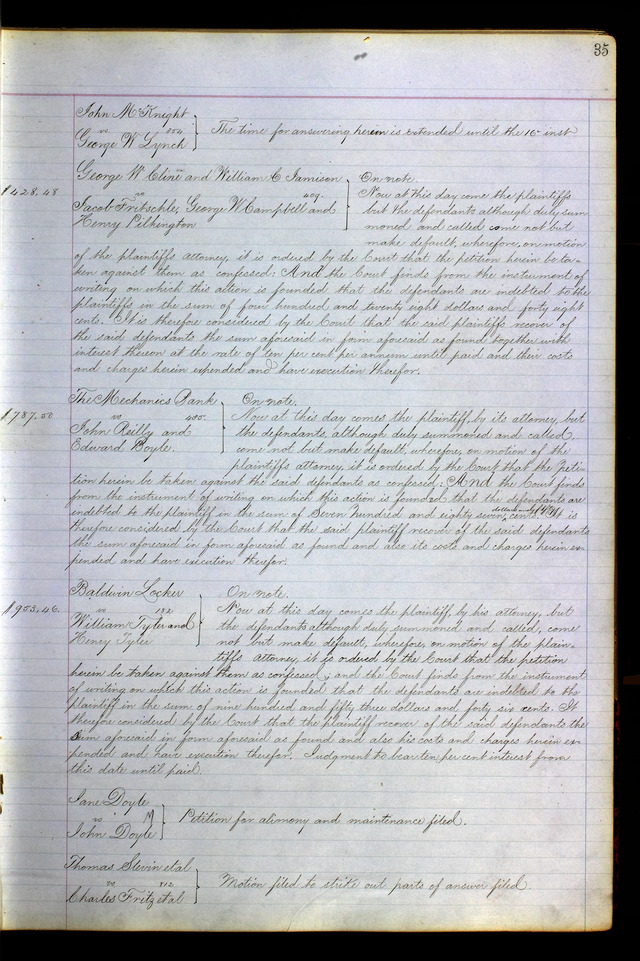 35
John McKnight
vs 554
George W Lynch
The time for answering herein is extended until the 16 inst
George W Cline and William C Jamison
vs 409
Jacob Fritschle, George W Campbell and
Henry Pilkington
$428.48
On note.
Now at this day come the plaintiffs
but the defendants although duly sum
moned and called come not but
make default, wherefore, on motion
of the plaintiffs attorney, it is ordered by the Court that the petition herein be ta-
ken against them as confessed: And the Court finds from the instrument of
writing on which this action is founded that the defendants are indebted to the
plaintiffs in the sum of four hundred and twenty eight dollars and forty eight
cents. It is therefore considered by the Court that the said plaintiffs recover of
the said defendants the sum aforesaid in form aforesaid as found together with
interest thereon at the rate of ten per cent per annum until paid and their costs
and charges herein expended and have execution therefor.
The Mechanics Bank
vs 400.
John Reilly and
Edward Boyle.
$787.50
On note.
Now at this day comes the plaintiff, by its attorney, but
the defendants, although duly summoned and called,
come not but make default, wherefore, on motion of the
plaintiffs attorney, it is ordered by the Court that the peti-
tion herein be taken against the said defendants as confessed: And the Court finds
from the instrument of writing on which this action is founded that the defendants are
indebted to the plaintiff in the sum of Seven hundred and eighty seven dollars and cents It is
therefore considered by the Court that the said plaintiff recover of the said defendants
the sum aforesaid in form aforesaid as found and also its costs and charges herein ex-
pended and have execution therefor.
Baldwin Locker
vs 182
William Tyler and
Henry Tyler
$953.46.
On note.
Now at this day comes the plaintiff, by his attorney, but
the defendants although duly summoned and called, come
not but make default, wherefore, on motion of the plain-
tiffs attorney, it is ordered by the Court that the petition
herein be taken against them as confessed; and the Court finds from the instrument
of writing on which this action is founded that the defendants are indebted to the
plaintiff in the sum of nine hundred and fifty three dollars and forty six cents. It
therefore considered by the Court that the plaintiff recover of the said defendants the
sum aforesaid in form aforesaid as found and also his costs and charges herein ex-
pended and have execution therefor. Judgment to bear ten per cent interest from
this date until paid.
Jane Doyle
vs
John Doyle
Petition for alimony and maintenance filed.
Thomas Slevin et al
vs 812
Charles Fritz et al
Motion filed to strike out parts of answer filed.